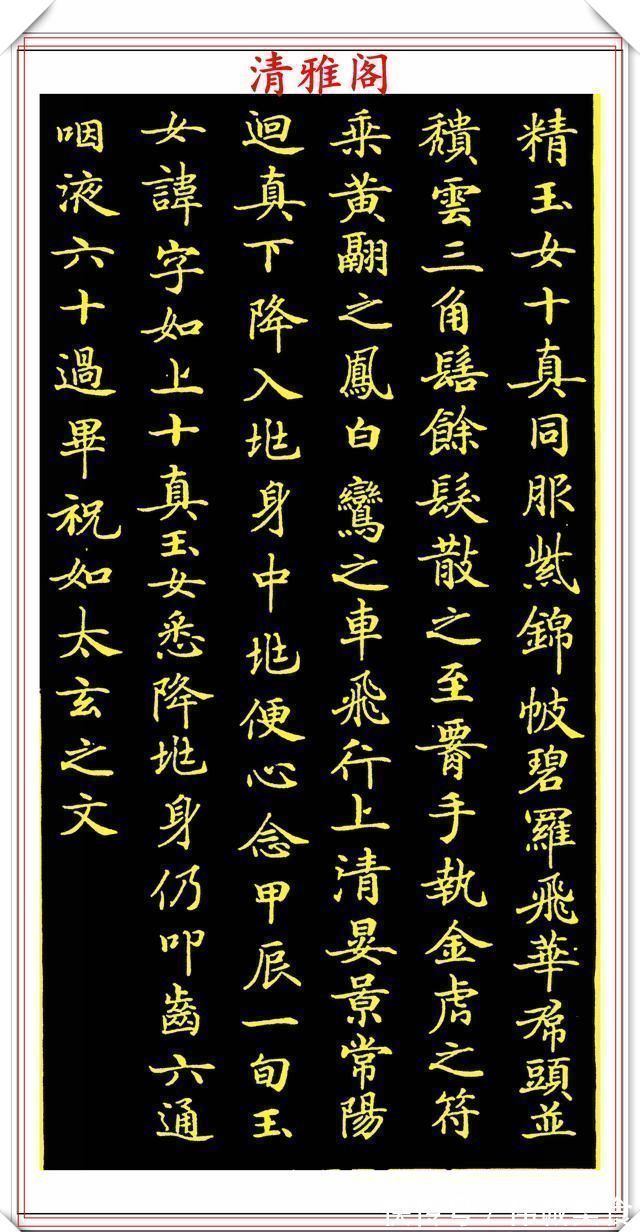 清雅阁
精玉女十真同服紫錦帔碧羅飛華帬頭並
頹雲三角髻餘髮散之至署手執金虎之符
乗黃翮之鳳白鸞之車飛行上清晏景常陽
迴真下降入兆身中兆便心念甲辰一旬玉
女諱字如上十真玉女悉降兆身仍叩齒六通
咽液六十過畢祝如太玄之文